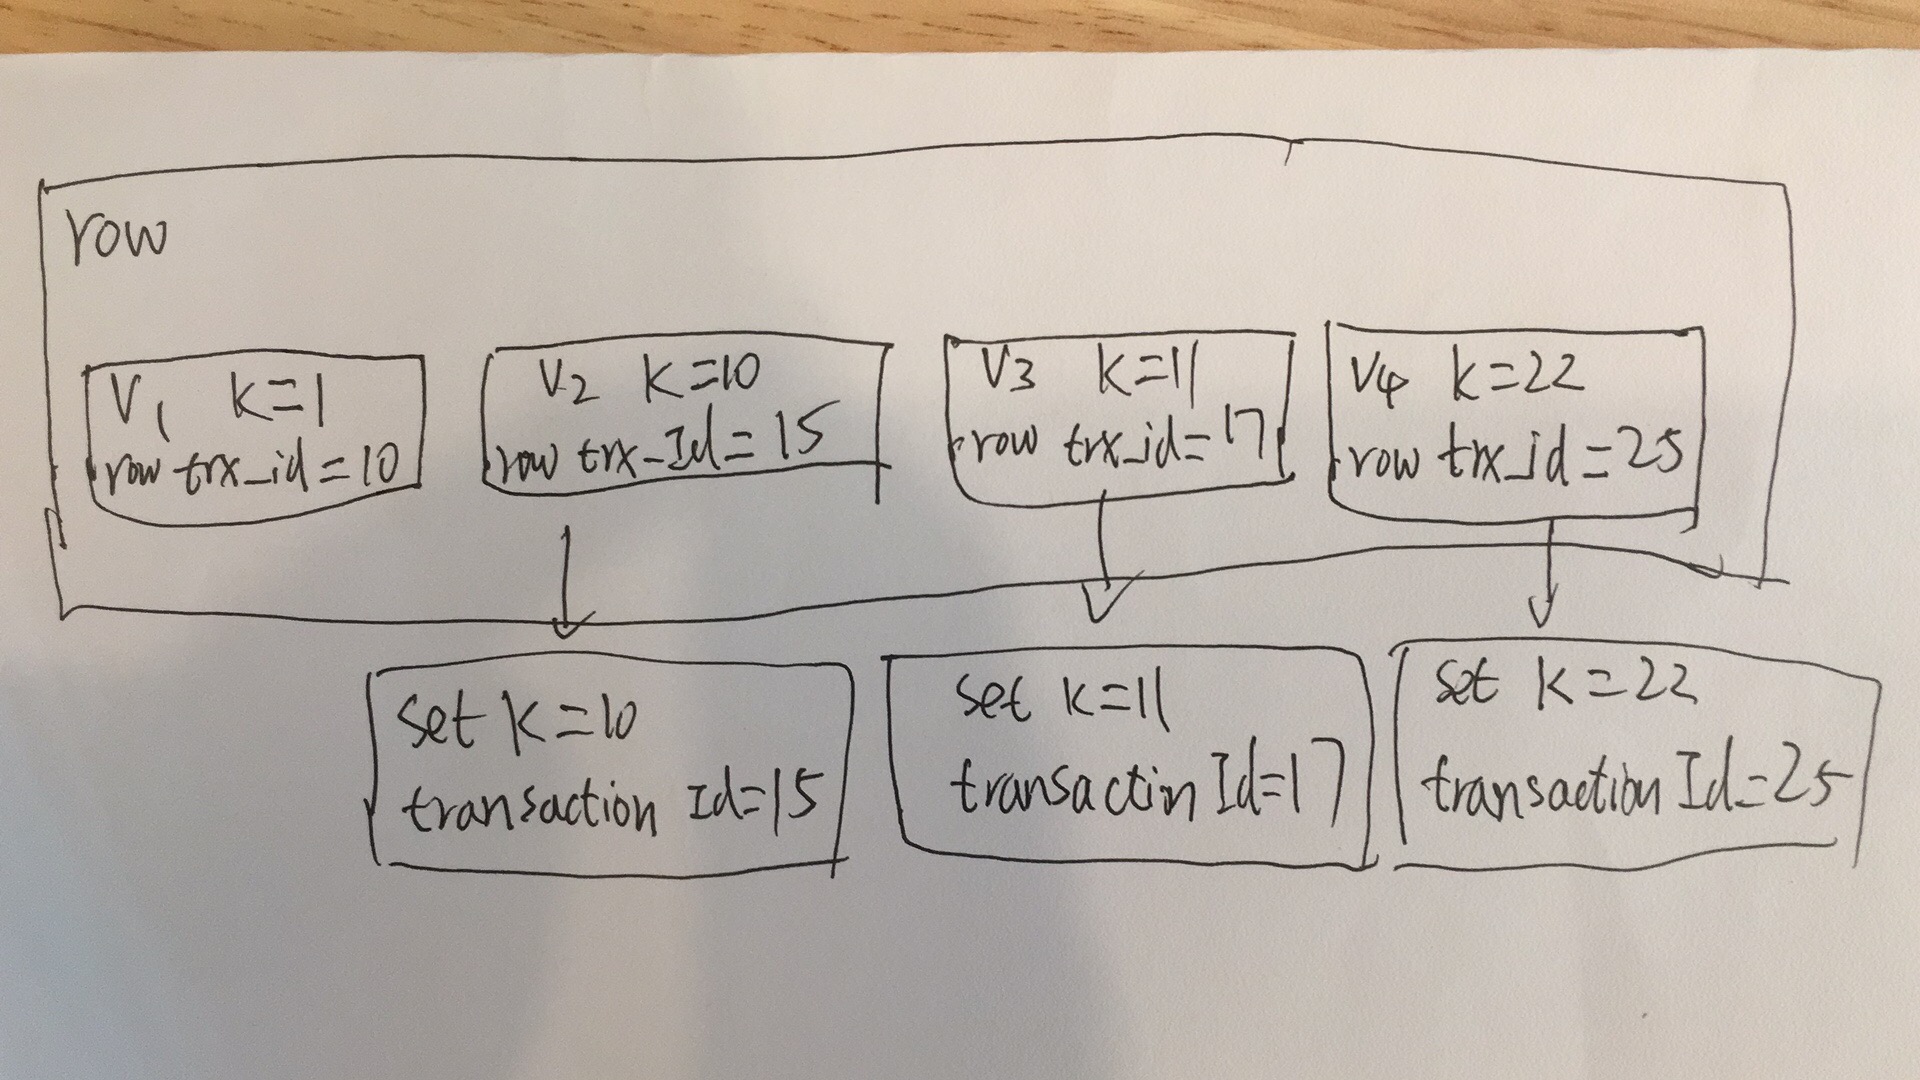 row
V1 k=1
row trx_id=10
V2 K=10
row trx_Id=15
V3 K=11
row trx_id=17
V4 K=22
row trx_id=25
set K=10
transaction Id=15
set K=11
transactin Id=17
set K=22
transaction Id=25